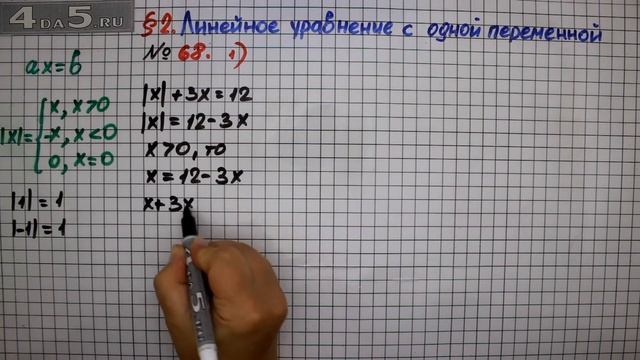 4DA5.RU
§2. Линейное уравнение с одной переменной
№ 68. 1)
ax=b
|x|={x, x>0
-x, x<0
0, x=0
|1|=1
|-1|=1
|x|+3x=12
|x|=12-3x
x>0, то
x=12-3x
x+3x